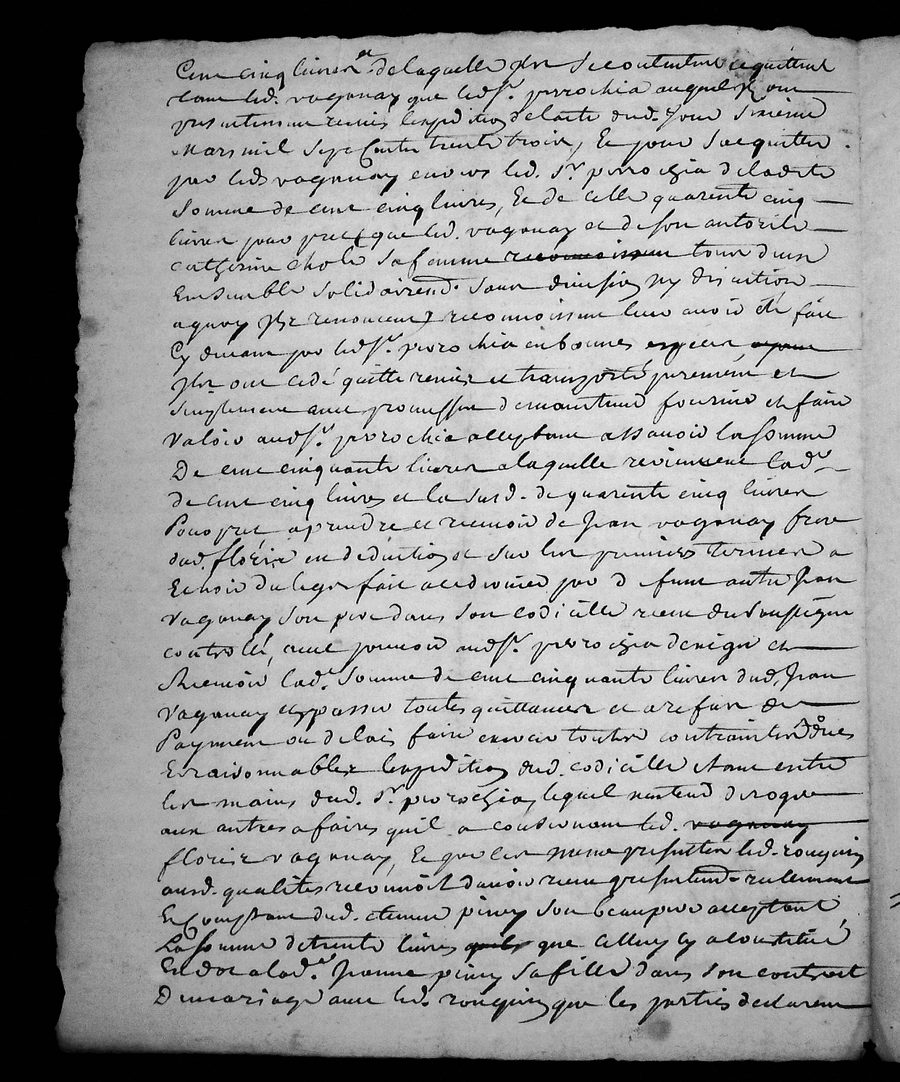 Cent cinq livres de laquelle ils se contentent et quittent
tant led. vaganay que led. sr. perrochia auquel ils ont
presentement remis lexpedition de lacte dud. jour
Mars mil sept Cents trente trois, Et pour sacquitter
par led. vaganay envers led. sr. perrochia de ladite
Somme de cent cinq livres, Et de celle quarente cinq
livres pour pret que led. vaganay et de son autorité
catherine sa femme reconnoissent tous deux
Ensemble solidairemt. sans division ny discution
a quoy ils renoncent reconnoissent leur avoir été fait
Cy devant par led. sr. perrochia en bonnes especes
ils ont cedé quitté remis et transporté purement et
simplement avec promesse de maintenir fournir et faire
valoir aud. sr. perrochia acceptant assavoir la somme
De cent cinquante livres a laquelle reviennent lad.
de cent cinq livres et la susd. de quarente cinq livres
Pour pret a prendre et recevoir de Jean vaganay frere
dud. floris en deduction et sur les premiers termes a
Echoir du legs fait aud. par defunt autre Jean
vaganay son pere dans son codicille receu du soussigné
controllé, avec pouvoir aud. sr. perrochia dexiger et
Recevoir lad. somme de cent cinquante livres dud. Jean
vaganay et passer toutes quittances et a refus de
Payement ou delais faire exercer toutes contraintes dues
Et raisonnables lexpedition dud. codicille etant entre
les mains dud. sr. perrochia, lequel nentend deroger
aux autres afaires quil a led. vaganay
floris vaganay, Et que les meme presentes led. rouquin
ausd. qualités reconnoit davoir receu presentemt. reellement
Et Comptant dud. etienne piney son beaupere acceptant
La somme de trente livres quils que celluy cy a constitué
En dot a lad. Jeanne piney sa fille dans son contrat
De mariage avec led. rouquin que les parties declarent